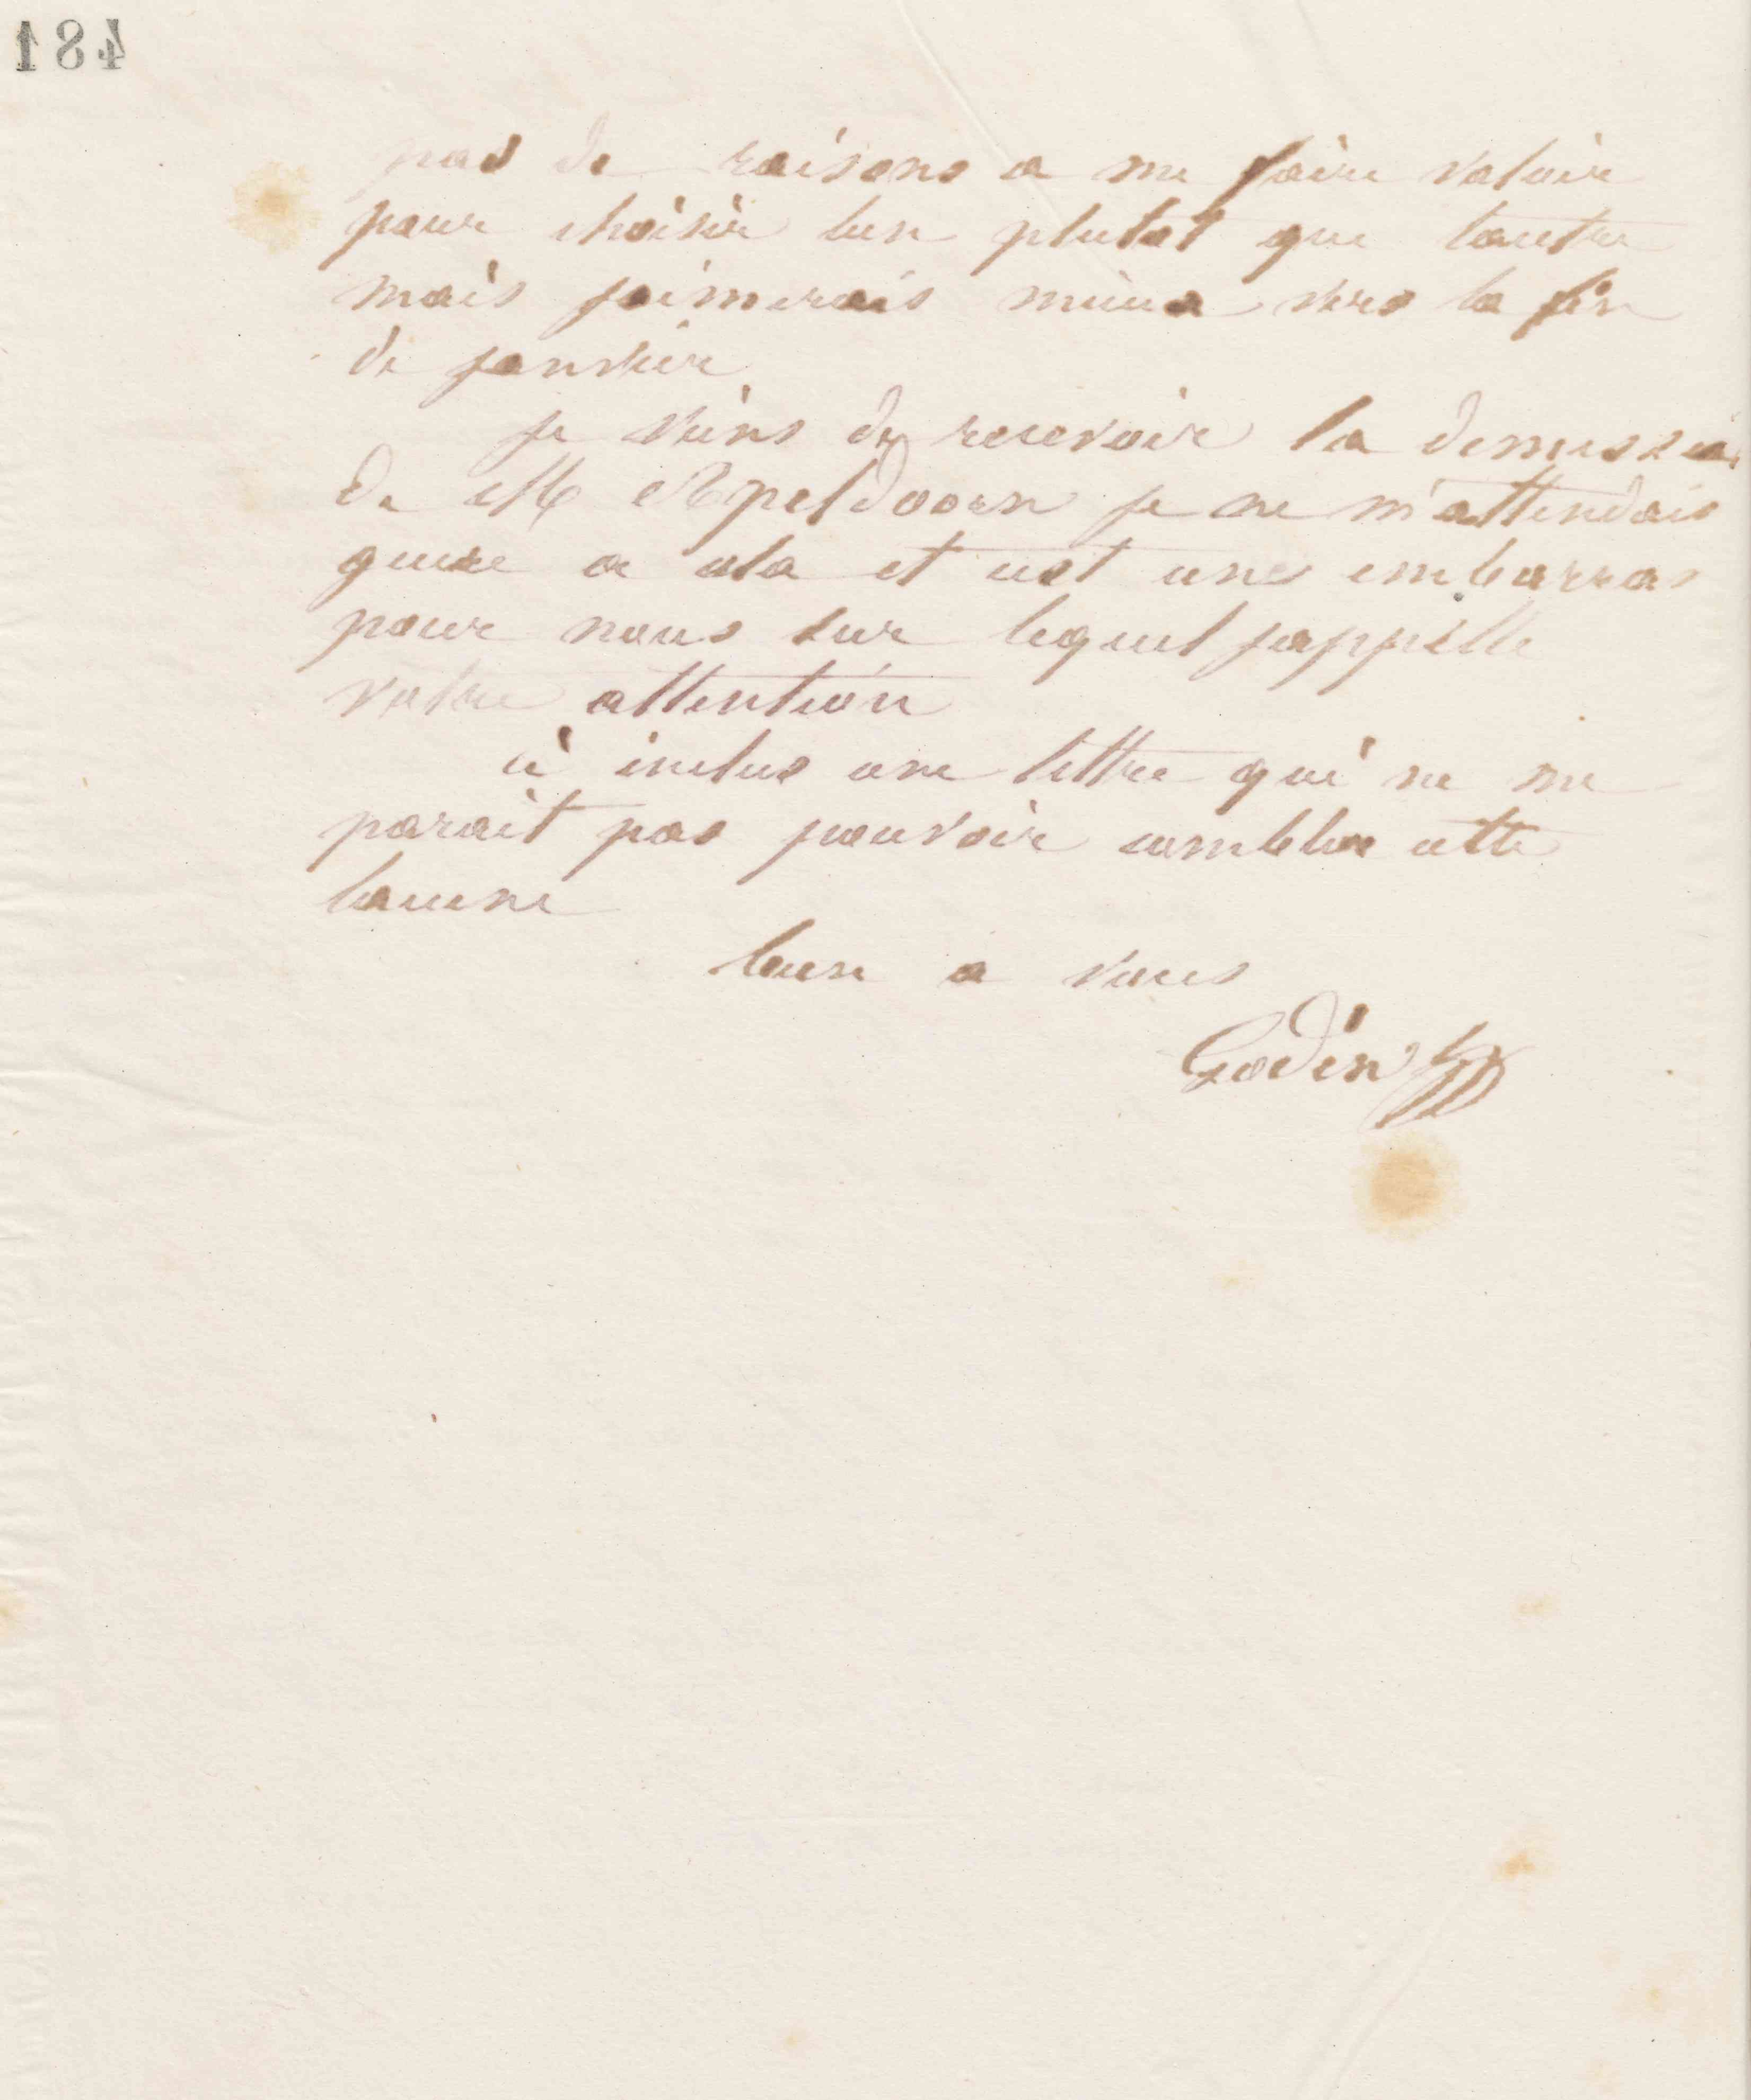 481
pas de raisons a me faire valoir
pour choisir lun plutot que lautre
mais jaimerais mieux vers la fin
de janvier
je viens de recevoir la demission
de M Apeldoorn je ne m'attendais
guere a cela et cest une embarras
pour nous sur lequel jappelle
votre attention
ci inclus une lettre qui ne me
parait pas pouvoir combler cette
lacune
bien a vous
Godin